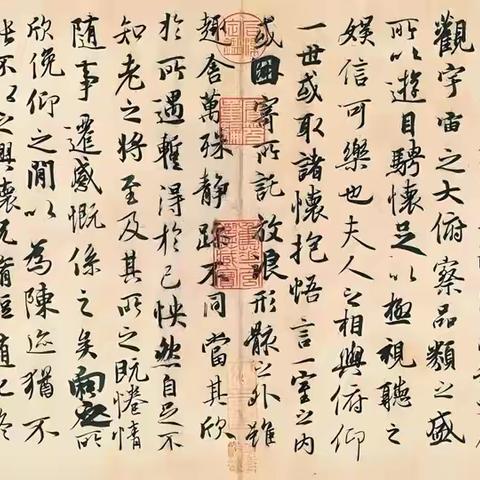 觀宇宙之大俯察品類之盛
所以遊目騁懷足以極視聽之
娛信可樂也夫人之相與俯仰
一世或取諸懷抱悟言一室之內
或因寄所託放浪形骸之外雖
趣舍萬殊靜躁不同當其欣
於所遇暫得於己怏然自足不
知老之將至及其所之既惓情
隨事遷感慨係之矣向之所
欣俛仰之閒以為陳迹猶不
不以之興懷況脩短隨化終